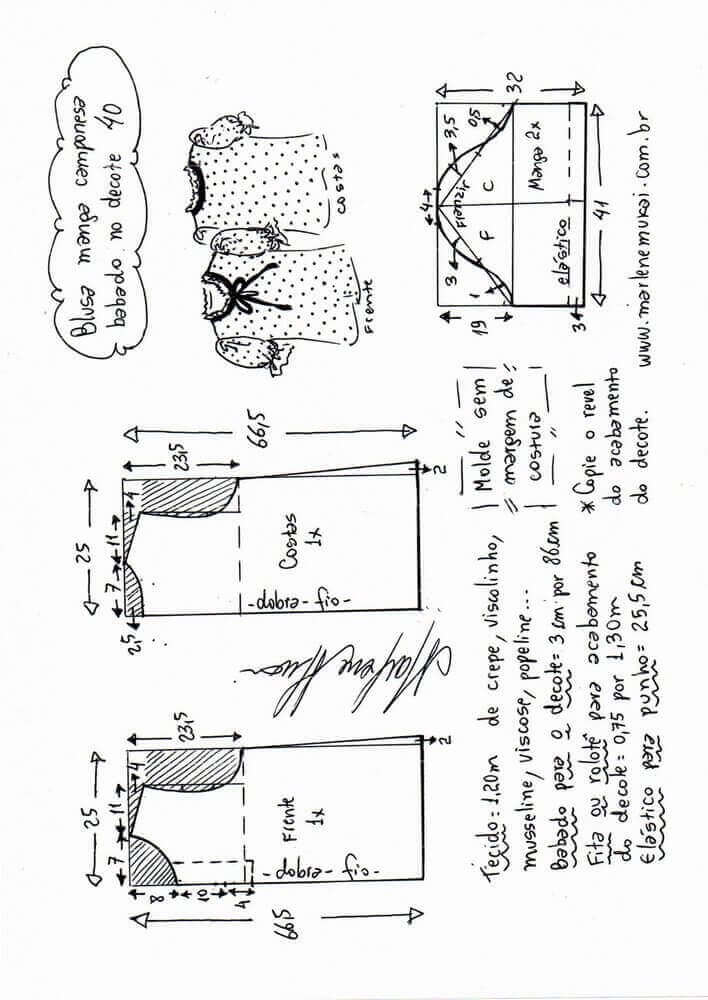 Blusa manga camponesa
babado no decote 40
costas
Frente
25
7
11
4
8
10
4
66,5
23,5
Frente
1x
dobra-fio-
2
25
7
11
4
2,5
23,5
66,5
Costas
1x
dobra-fio-
2
4
Franzir
3
3,5
1
0,5
F
C
19
32
Manga 2x
elástico
3
41
Tecido=1,20m de crepe, viscolinho,
musseline, viscose, popeline...
Babado para o decote=3cm por 86cm
Fita ou rolotê para acabamento
do decote=0,75 por 1,30m
Elástico para punho=25,5cm
Molde sem
margem de
costura
*Copie o revel
do acabamento
do decote.
www.marlenemukai.com.br